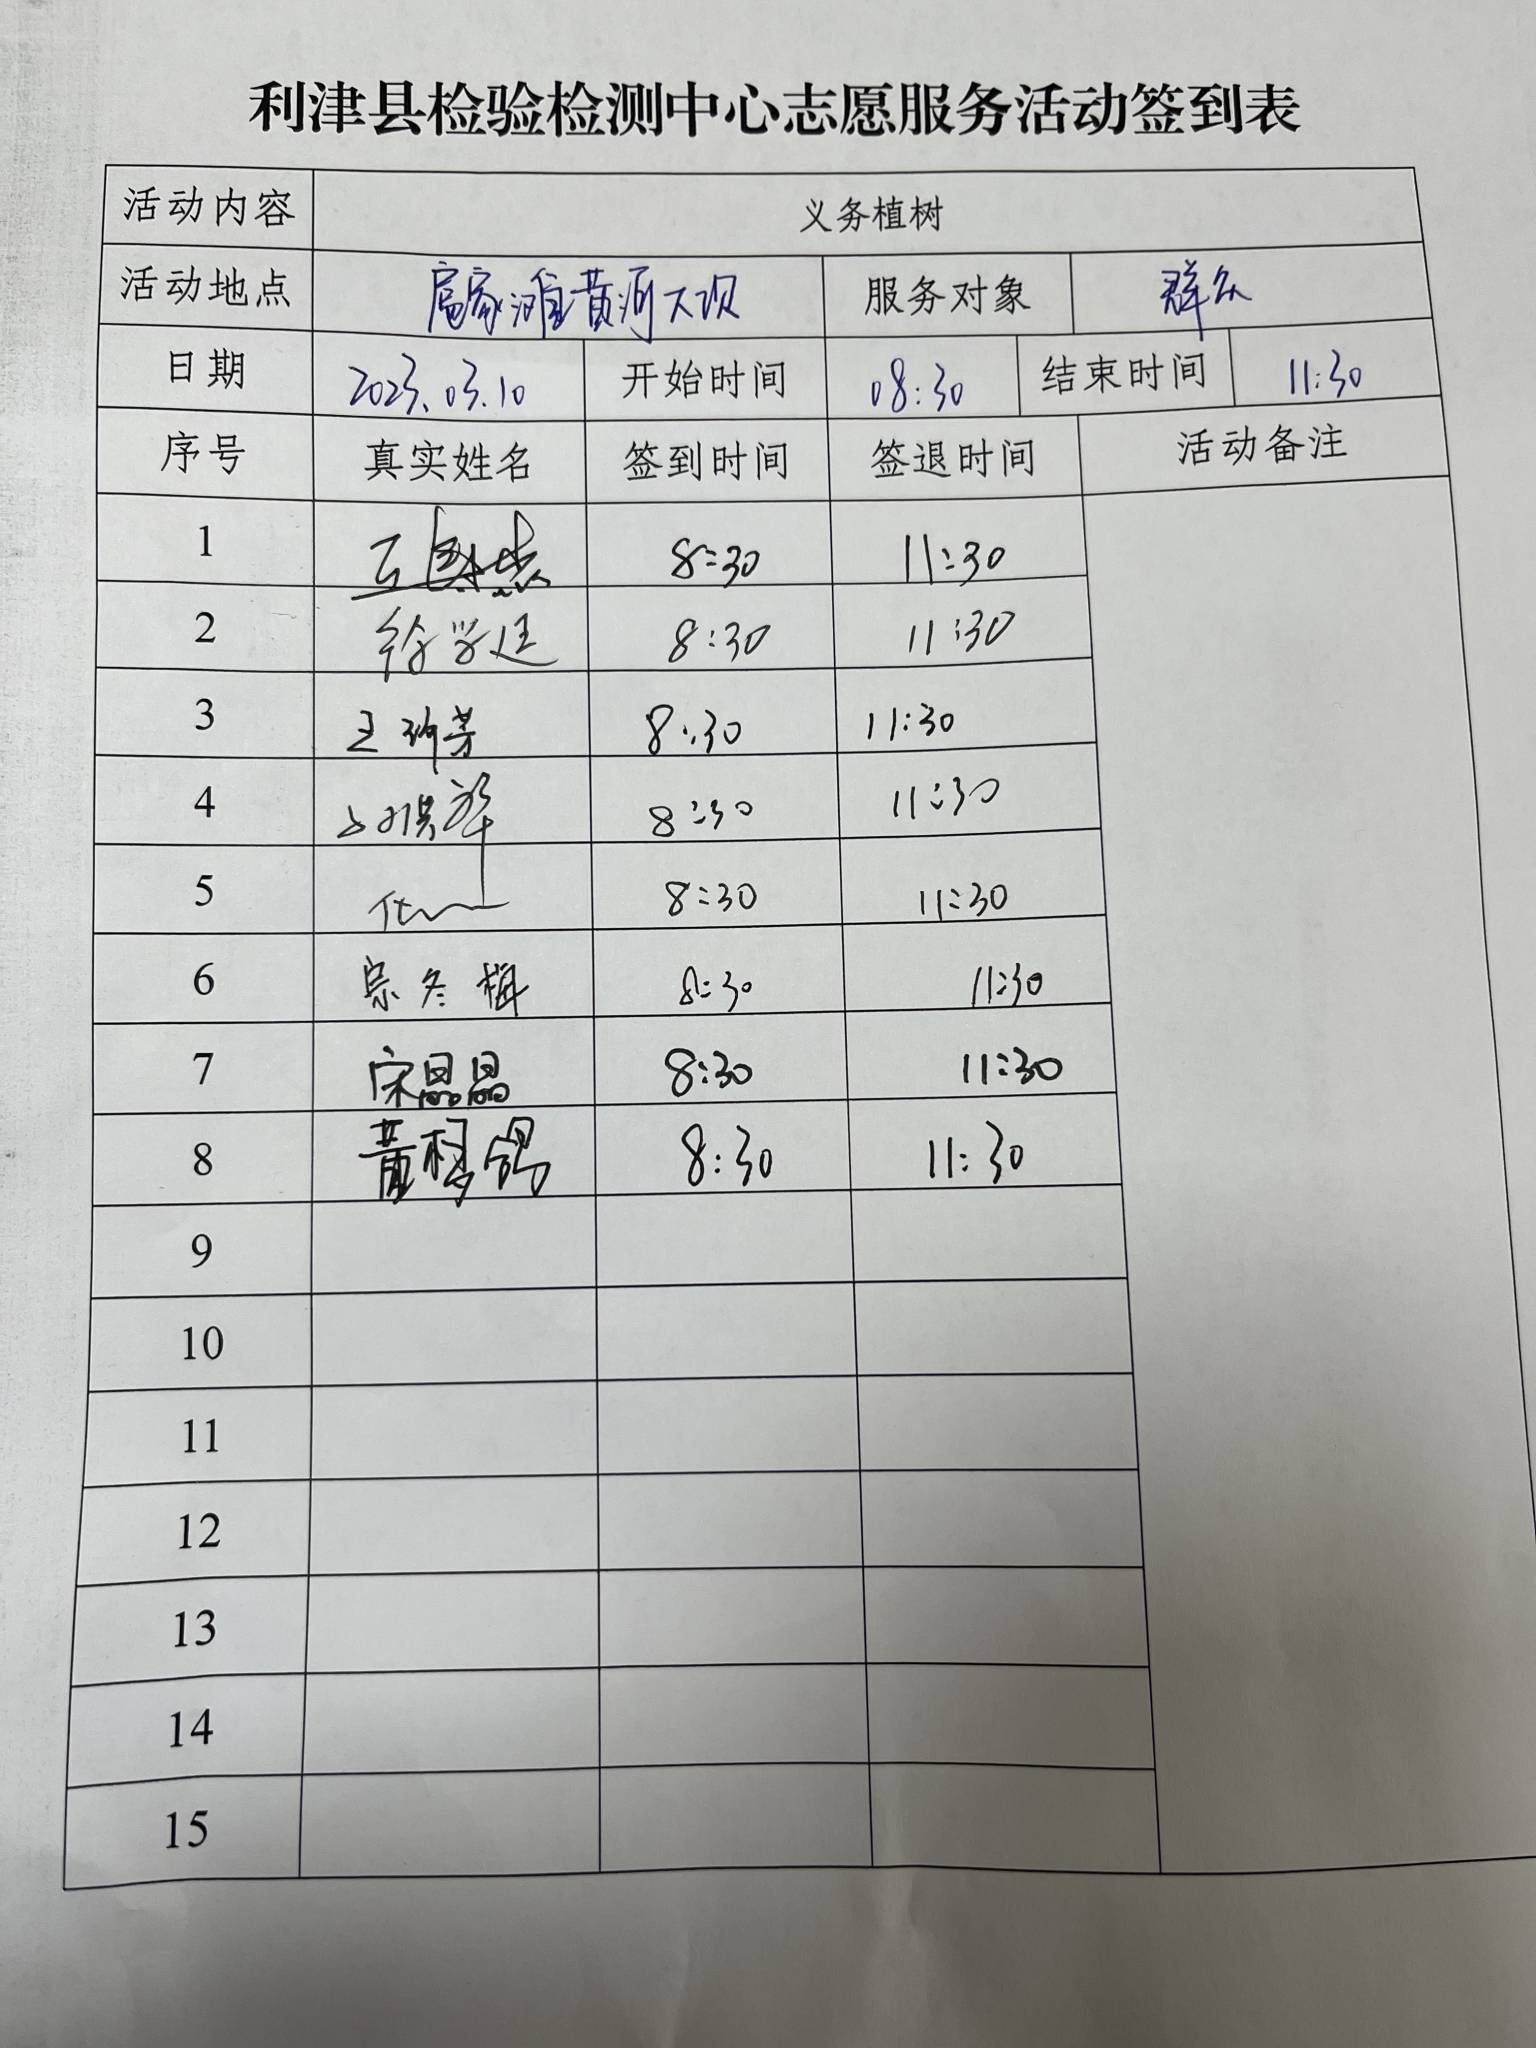 利津县检验检测中心志愿服务活动签到表
活动内容 义务植树
活动地点 扈家滩黄河大坝 服务对象 群众
日期 2023.03.10 开始时间 08:30 结束时间 11:30
序号 真实姓名 签到时间 签退时间 活动备注
1 8:30 11:30
2 徐学廷 8:30 11:30
3 8:30 11:30
4 8:30 11:30
5 8:30 11:30
6 宗冬梅 8:30 11:30
7 宋晶晶 8:30 11:30
8 8:30 11:30
9
10
11
12
13
14
15